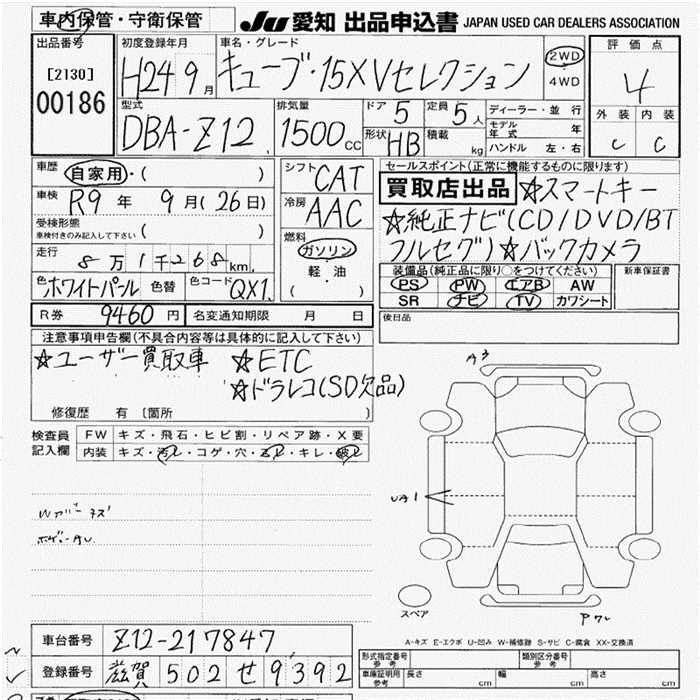 車内保管・守衛保管
JU 愛知 出品申込書 JAPAN USED CAR DEALERS ASSOCIATION
出品番号
[2130]
00186
初度登録年月
H24 9月
車名・グレード
キューブ・15X Vセレクション
2WD
4WD
評価点
4
外装 内装
C C
型式
DBA-Z12
排気量
1500cc
ドア 5
定員 5人
形状 HB
積載 kg
ディーラー・並行
モデル年式 年
ハンドル 左・右
車歴
自家用・( )
車検
R9年 9月(26日)
受検形態
車検付きのみ記入して下さい ( )
走行
8万1千268km
色 ホワイトパール 色替 色コード QX1
R券 9460円 名変通知期限 月 日
シフト CAT
冷房 AAC
燃料
ガソリン
軽油
( )
セールスポイント(正常に機能するものに限ります)
買取店出品 ☆スマートキー
☆純正ナビ(CD/DVD/BT
フルセグ)☆バックカメラ
装備品(純正品に限り○をつけてください) 新車保証書
PS PW エアB AW
SR ナビ TV カワシート
後日品
注意事項申告欄(不具合内容等は具体的に記入して下さい)
☆ユーザー買取車 ☆ETC
☆ドラレコ(SD欠品)
修復歴 有 〔箇所 〕
検査員記入欄
FW キズ・飛石・ヒビ割・リペア跡・X要
内装 キズ・汚レ・コゲ・穴・スレ・キレ・破レ
A3
UA1
スペア
A-キズ E-エクボ U-凹み W-補修跡 S-サビ C-腐食 XX-交換済
車台番号 Z12-217847
登録番号 滋賀 502 せ 9392
形式指定番号 参考
類別区分番号 参考
車庫証明用 参考 長さ cm 幅 cm 高さ cm